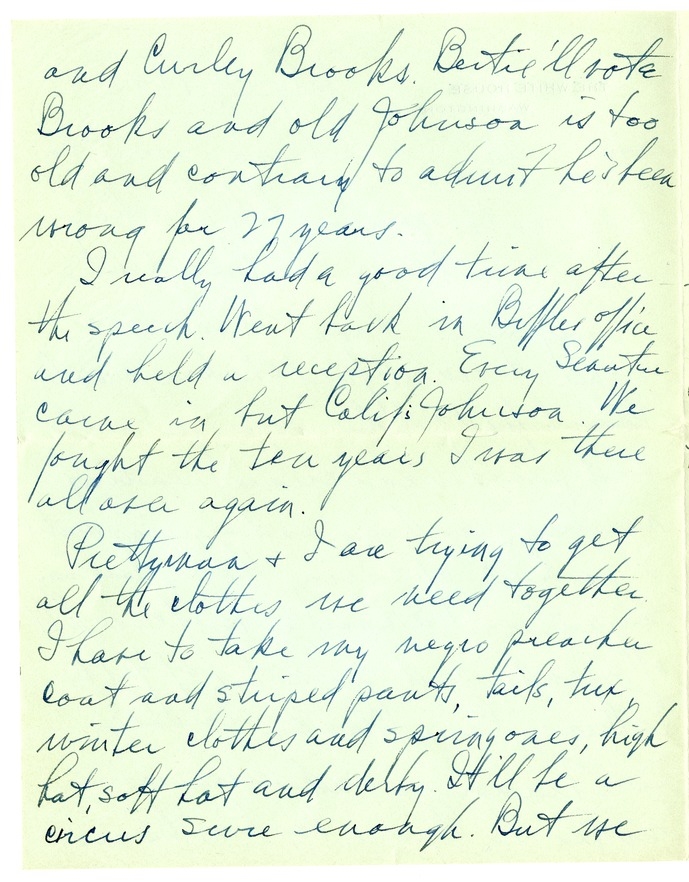 and Curley Brooks. Bertie'll vote
Brooks and old Johnson is too
old and contrary to admit he's been
wrong for 27 years.
I really had a good time after
the speech. Went back in Biffle's office
and held a reception. Every Senator
came in but Calif's Johnson. We
fought the ten years I was there
all over again.
Prettyman & I are trying to get
all the clothes we need together.
I have to take my negro preacher
coat and striped pants, tails, tux,
winter clothes and spring ones, high
hat, soft hat and derby. It'll be a
circus sure enough. But we